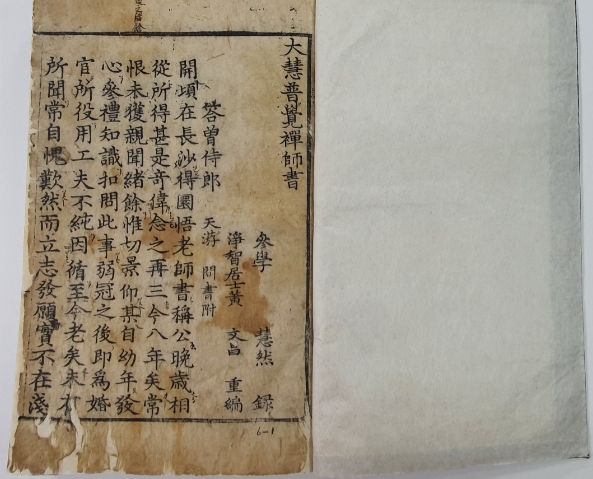 大慧普覺禪師書
參學 慧然 錄
淨智居士黃 文昌 重編
答曾侍郎 天游 問書附
開頃在長沙得圜悟老師書稱公晚歲相
從所得甚是奇偉念之再三今八年矣常
恨未獲親聞緖餘惟切景仰某自幼年發
心參禮知識扣問此事弱冠之後即爲婚
宦所役用工夫不純因循至今老矣未有
所聞常自愧歎然而立志發願實不在淺
6-1